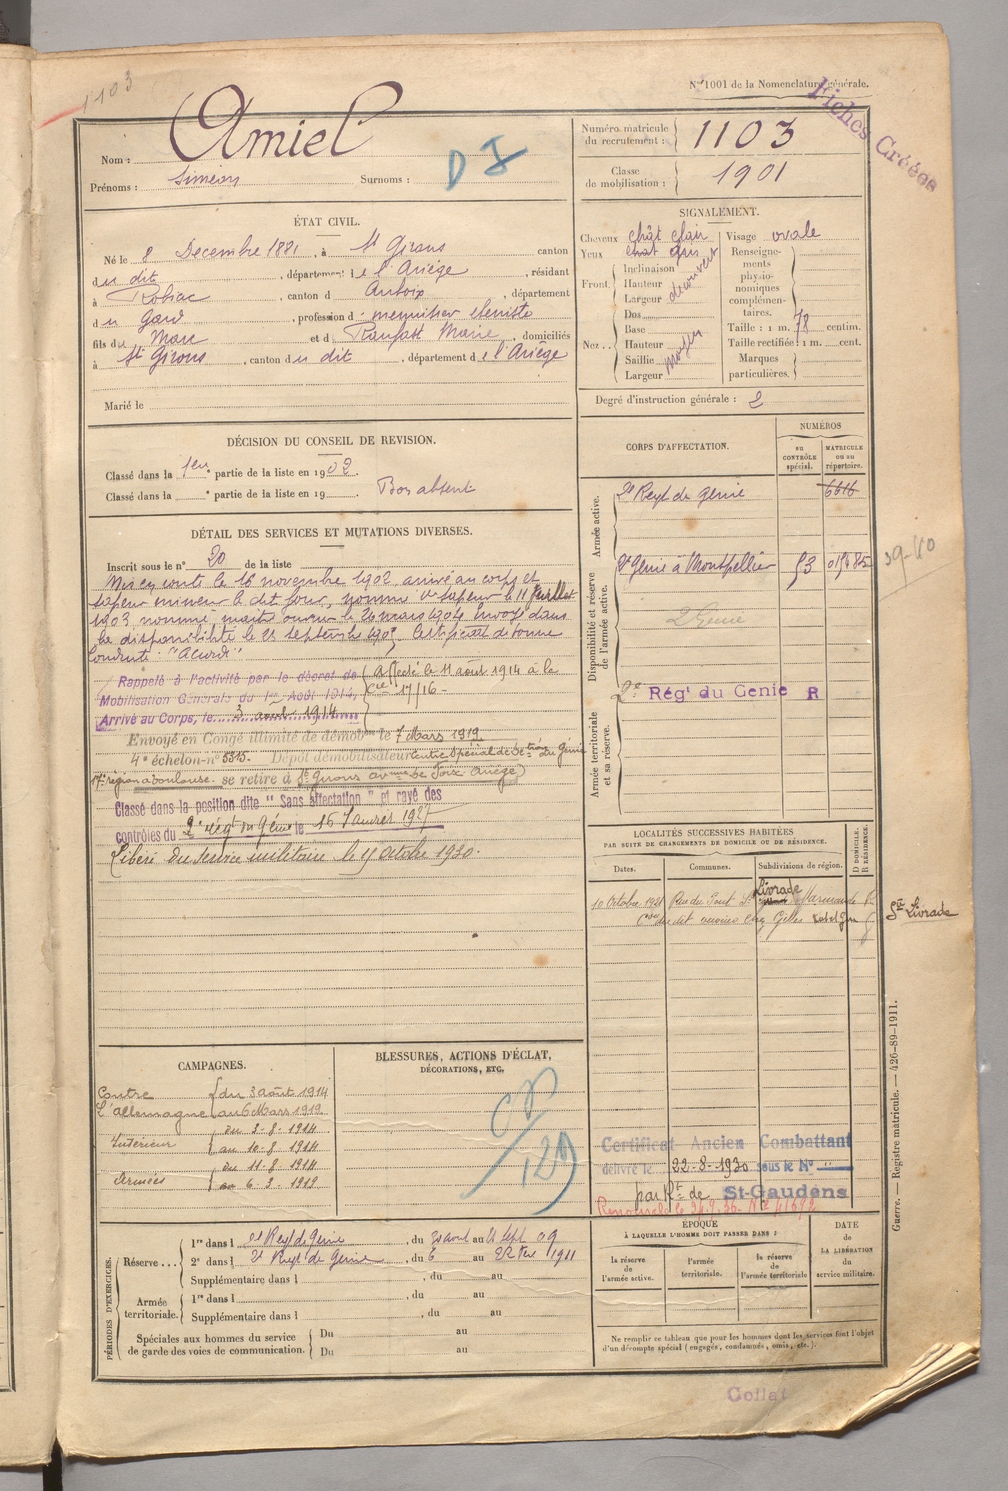 1103
N° 1001 de la Nomenclature générale.
Fiches Créées
Nom : Amiel
Prénoms : Siméon Surnoms :
D J
Numéro matricule du recrutement : 1103
Classe de mobilisation : 1901
ÉTAT CIVIL.
Né le 8 Decembre 1881, à St Girons canton
du dit, département de l'Ariège, résidant
à Robiac, canton d , département
du Gard, profession d menuisier ébéniste
fils de Marc et d Marie, domiciliés
à St Girons, canton du dit, département de l'Ariège
Marié le
SIGNALEMENT.
Cheveux chât clair
Yeux chat gris
Front. Inclinaison
Hauteur
Largeur
découvert
Nez. Dos
Base
Hauteur
Saillie
Largeur
moyen
Visage ovale
Renseignements physionomiques complémentaires.
Taille : 1 m. 78 centim.
Taille rectifiée : 1 m. cent.
Marques particulières.
Degré d'instruction générale : 2
DÉCISION DU CONSEIL DE REVISION.
Classé dans la 1ere partie de la liste en 1902
Classé dans la e partie de la liste en 19
Bon absent
CORPS D'AFFECTATION.
NUMÉROS
au CONTRÔLE spécial.
MATRICULE ou au répertoire.
Armée active.
2e Regt de Génie 6616
Disponibilité et réserve de l'armée active.
2e Génie à Montpellier 53
2 Génie
39-40
Armée territoriale et sa réserve.
2e Régt du Genie R
DÉTAIL DES SERVICES ET MUTATIONS DIVERSES.
Inscrit sous le n° 20 de la liste
Mis en route le 16 novembre 1902 arrivé au corps et
sapeur mineur le dit jour, nommé 1er sapeur le 11 juillet
1903 nommé maitre ouvrier le 26 mars 1904 Envoyé dans
la disponibilité le 21 septembre 190 Certificat de bonne
conduite : "Accordé"
Rappelé à l'activité par le décret de
Mobilisation Générale du 1er Août 1914,
Arrivé au Corps, le 3 août 1914
Affecté le 11 août 1914 à la
Cie 17/16
Envoyé en Congé illimité de démobon le 7 Mars 1919
4e échelon n° 5313. Dépôt démobilisateur Centre Spécial de du Génie
17e région à Toulouse. se retire à St Girons de Foix Ariège
Classé dans la position dite "Sans affectation" et rayé des
contrôles du 2e régt du Génie le 15 Janvier 1927
Libéré du service militaire le 15 octobre 1930.
LOCALITÉS SUCCESSIVES HABITÉES
PAR SUITE DE CHANGEMENTS DE DOMICILE OU DE RÉSIDENCE.
Dates. Communes. Subdivisions de région. D DOMICILE. R RÉSIDENCE.
10 Octobre 1921 Rue du Pont Ste Livrade Marmande R
Ste Livrade
CAMPAGNES.
Contre l'Allemagne du 3 août 1914
au 6 Mars 1919
Intérieur du 3-8-1914
au 10-8-1914
Armées du 11-8-1914
au 6-3-1919
BLESSURES, ACTIONS D'ÉCLAT, DÉCORATIONS, ETC.
Certificat Ancien Combattant
délivré le 22-8-1930 sous le N°
par Rt de St-Gaudens
PÉRIODES D'EXERCICES.
Réserve... 1re dans l 2e Regt de Génie, du 20 août au 11 Sept 09
2e dans l 2e Regt de Génie, du 6 au 22 1911
Supplémentaire dans l , du au
Armée territoriale. 1re dans l , du au
Supplémentaire dans l , du au
Spéciales aux hommes du service de garde des voies de communication. Du au
Du au
ÉPOQUE
À LAQUELLE L'HOMME DOIT PASSER DANS :
la réserve de l'armée active.
l'armée territoriale.
la réserve de l'armée territoriale
DATE de LA LIBÉRATION du service militaire.
Ne remplir ce tableau que pour les hommes dont les services font l'objet
d'un décompte spécial (engagés, condamnés, omis, etc.).
Guerre. — Registre matricule. — 426-89-1911.
Collat